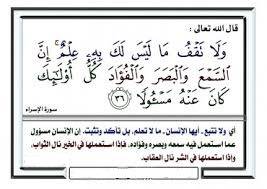 قال الله تعالى :
وَلَا تَقْفُ مَا لَيْسَ لَكَ بِهِ عِلْمٌ إِنَّ
السَّمْعَ وَالْبَصَرَ وَالْفُؤَادَ كُلُّ أُوْلَٰئِكَ
كَانَ عَنْهُ مَسْئُولًا ٣٦
سورة الإسراء
أي ولا تتبع، أيها الإنسان، ما لا تعلم، بل تأكد وتثبت. إن الإنسان مسؤول
عما استعمل فيه سمعه وبصره وفؤاده، فإذا استعملها في الخير نال الثواب،
وإذا استعملها في الشر نال العقاب.